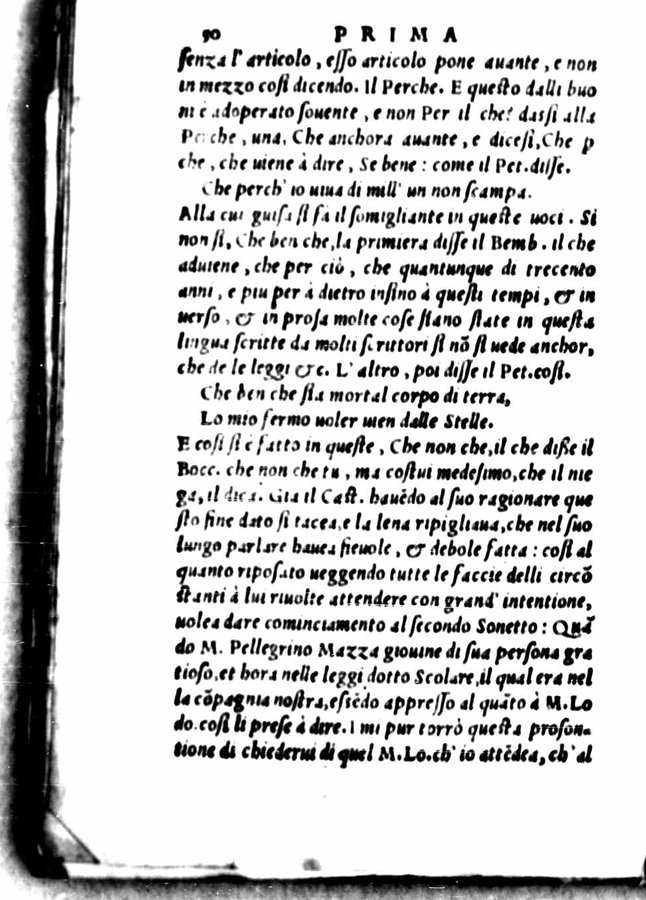 90 PRIMA
ſenza l' articolo, eſſo articolo pone auante, e non
in mezzo coſi dicendo. Il Perche. E queſto dalli buo
ni è adoperato ſouente, e non Per il che: daſſi alla
Perche, una, Che anchora auante, e diceſi, Che p
che, che uiene à dire, Se bene: come il Pet. diſſe.
Che perch' io uiua di mill' un non ſcampa.
Alla cui guiſa ſi fa il ſomigliante in queſte uoci. Si
non ſi, Che ben che, la primiera diſſe il Bemb. il che
aduiene, che per ciò, che quantunque di trecento
anni, e piu per à dietro inſino à queſti tempi, & in
uerſo, & in proſa molte coſe ſiano ſtate in queſta
lingua ſcritte da molti ſcrittori ſi nõ ſi uede anchor,
che de le leggi &c. L' altro, poi diſſe il Pet. coſi.
Che ben che ſia mortal corpo di terra,
Lo mio fermo uoler uien dalle Stelle.
E coſi ſi è fatto in queſte, Che non che, il che diſſe il
Bocc. che non che tu, ma coſtui medeſimo, che il nie
ga, il dica. Gia il Caſt. hauẽdo al ſuo ragionare que
ſto fine dato ſi tacea, e la lena ripigliaua, che nel ſuo
lungo parlare hauea fieuole, & debole fatta: coſi al
quanto ripoſato ueggendo tutte le faccie delli circõ
ſtanti à lui riuolte attendere con grand' intentione,
uolea dare cominciamento al ſecondo Sonetto: Quã
do M. Pellegrino Mazza giouine di ſua perſona gra
tioſo, et hora nelle leggi dotto Scolare, il qual era nel
la cõpagnia noſtra, eſſẽdo appreſſo al quãto à M. Lo
do. coſi li preſe à dire. I mi pur torrò queſta proſon-
tione di chiederui di quel M. Lo. ch' io attẽdea, ch' al